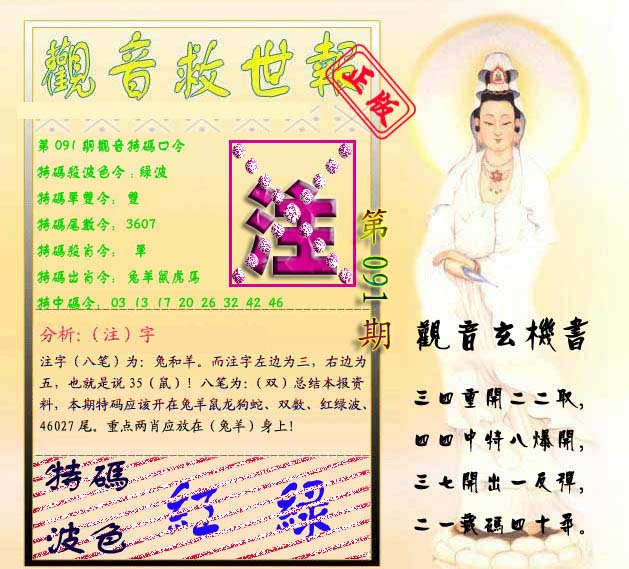 觀音救世報
正版
第091期觀音特碼口令
特碼殺波色令:綠波
特碼單雙令: 雙
特碼尾數令: 3607
特碼殺肖令: 單
特碼出肖令: 兔羊鼠虎馬
特中碼令: 03 13 17 20 26 32 42 46
注
第091期
分析:(注)字
注字(八笔)为:兔和羊。而注字左边为三,右边为
五,也就是说35(鼠)!八笔为:(双)总结本报资
料,本期特码应该开在兔羊鼠龙狗蛇、双数、红绿波、
46027尾。重点两肖应放在(兔羊)身上!
特碼
波色
紅 綠
觀音玄機書
三四重開二二取,
四四中特八爆開,
三七開出一反彈,
二一載碼四十尋。